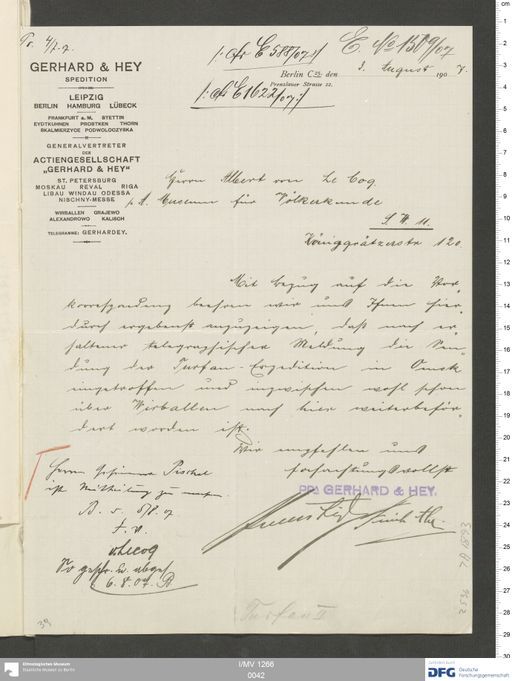 Pr. 4/8. 7.
/: cfr E 588/07 :/
E No 1509/07
/: cfr E 1622/07 :/
GERHARD & HEY
SPEDITION
LEIPZIG
BERLIN HAMBURG LÜBECK
FRANKFURT a. M. STETTIN
EYDTKUHNEN PROSTKEN THORN
SKALMIERZYCE PODWOLOCZYSKA
GENERALVERTRETER
DER
ACTIENGESELLSCHAFT
„GERHARD & HEY"
ST. PETERSBURG
MOSKAU REVAL RIGA
LIBAU WINDAU ODESSA
NISCHNY-MESSE
WIRBALLEN GRAJEWO
ALEXANDROWO KALISCH
TELEGRAMME: GERHARDEY.
Berlin C 25, den 3. August 1907.
Prenzlauer Strasse 22.
Herrn Albert von Le Coq
p. A. Museum für Völkerkunde
S. W. 11.
Königgrätzerstr 120
Mit Bezug auf die Vor-
korrespondenz beehren wir uns Ihnen hier-
durch ergebenst anzuzeigen, daß nach er-
haltener telegraphischer Meldung die Sen-
dung der Turfan-Expedition in Omsk
eingetroffen und inzwischen wohl schon
über Wirballen nach hier weiterbeför-
dert worden ist.
Wir empfehlen uns
hochachtungsvollst
PPA GERHARD & HEY.
Herrn Geheimrat Pischel
ist Mittheilung zu machen
B. 5. 8. 7
t. v.
v Lecoq
6. 8. 07.
Turfan II
39
I/MV 1266
0042
Ethnologisches Museum
Staatliche Museen zu Berlin
DFG Deutsche
Forschungsgemeinschaft